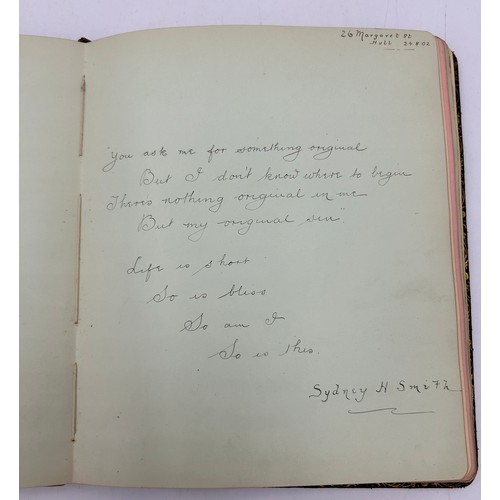 26 Margaret St
Hull 29.8.02
"You ask me for something original
But I don't know where to begin
Theres nothing original in me
But my original sin".
Life is short
So is bliss
So am I
So is this.
Sydney H Smith